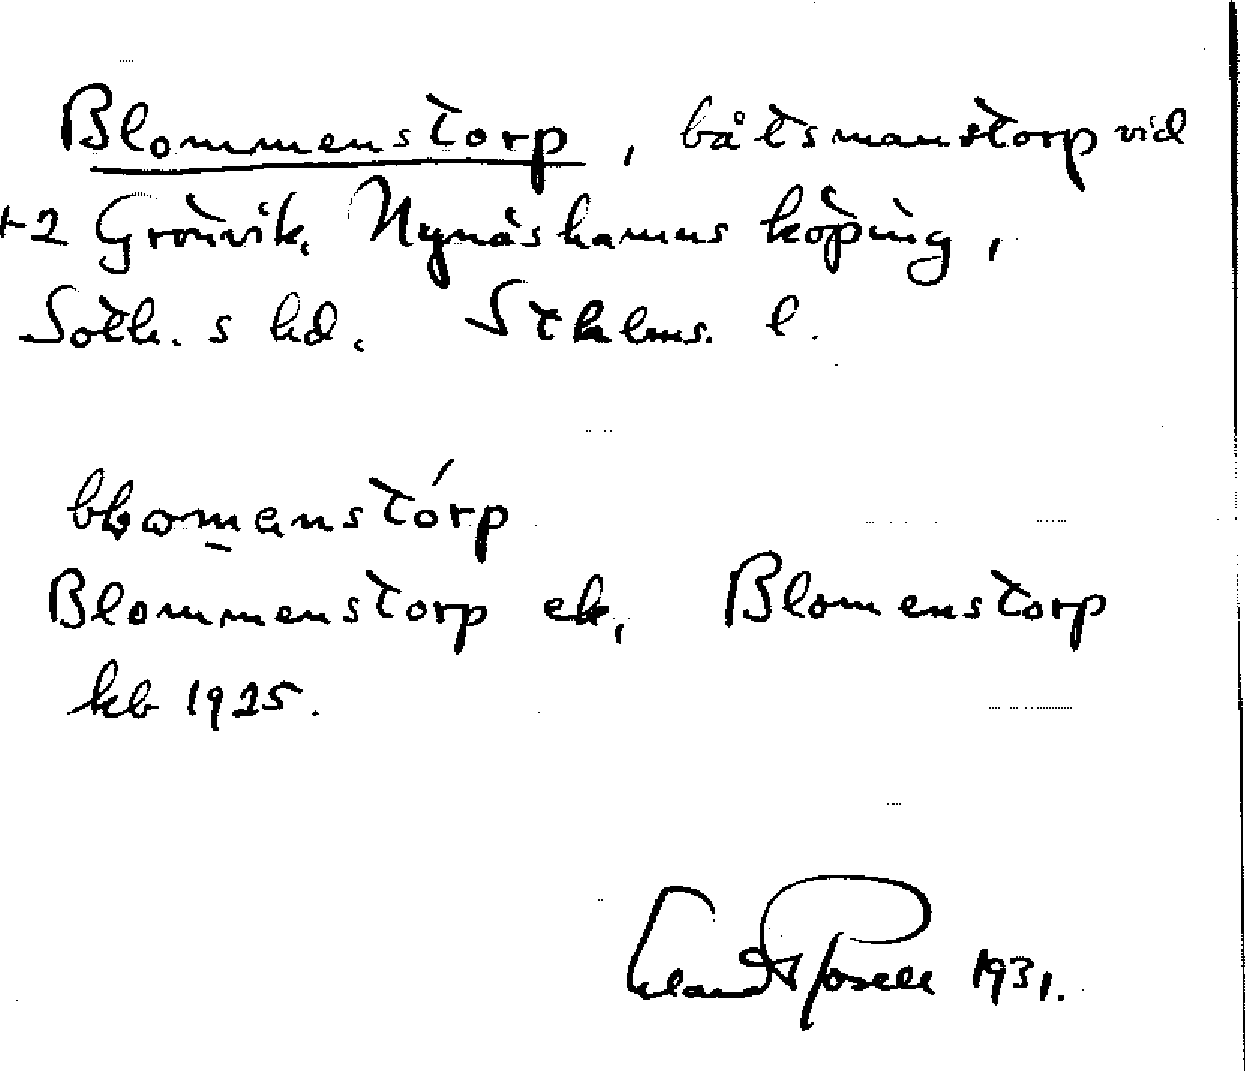 Blommenstorp, båtsmanstorp vid
+2 Grönvik, Nynäshamns köping,
Soth. s hd. Sthlms. l.
blomanstórp
Blommenstorp ek, Blomenstorp
kb 1925.
Erland Rosell 1931.